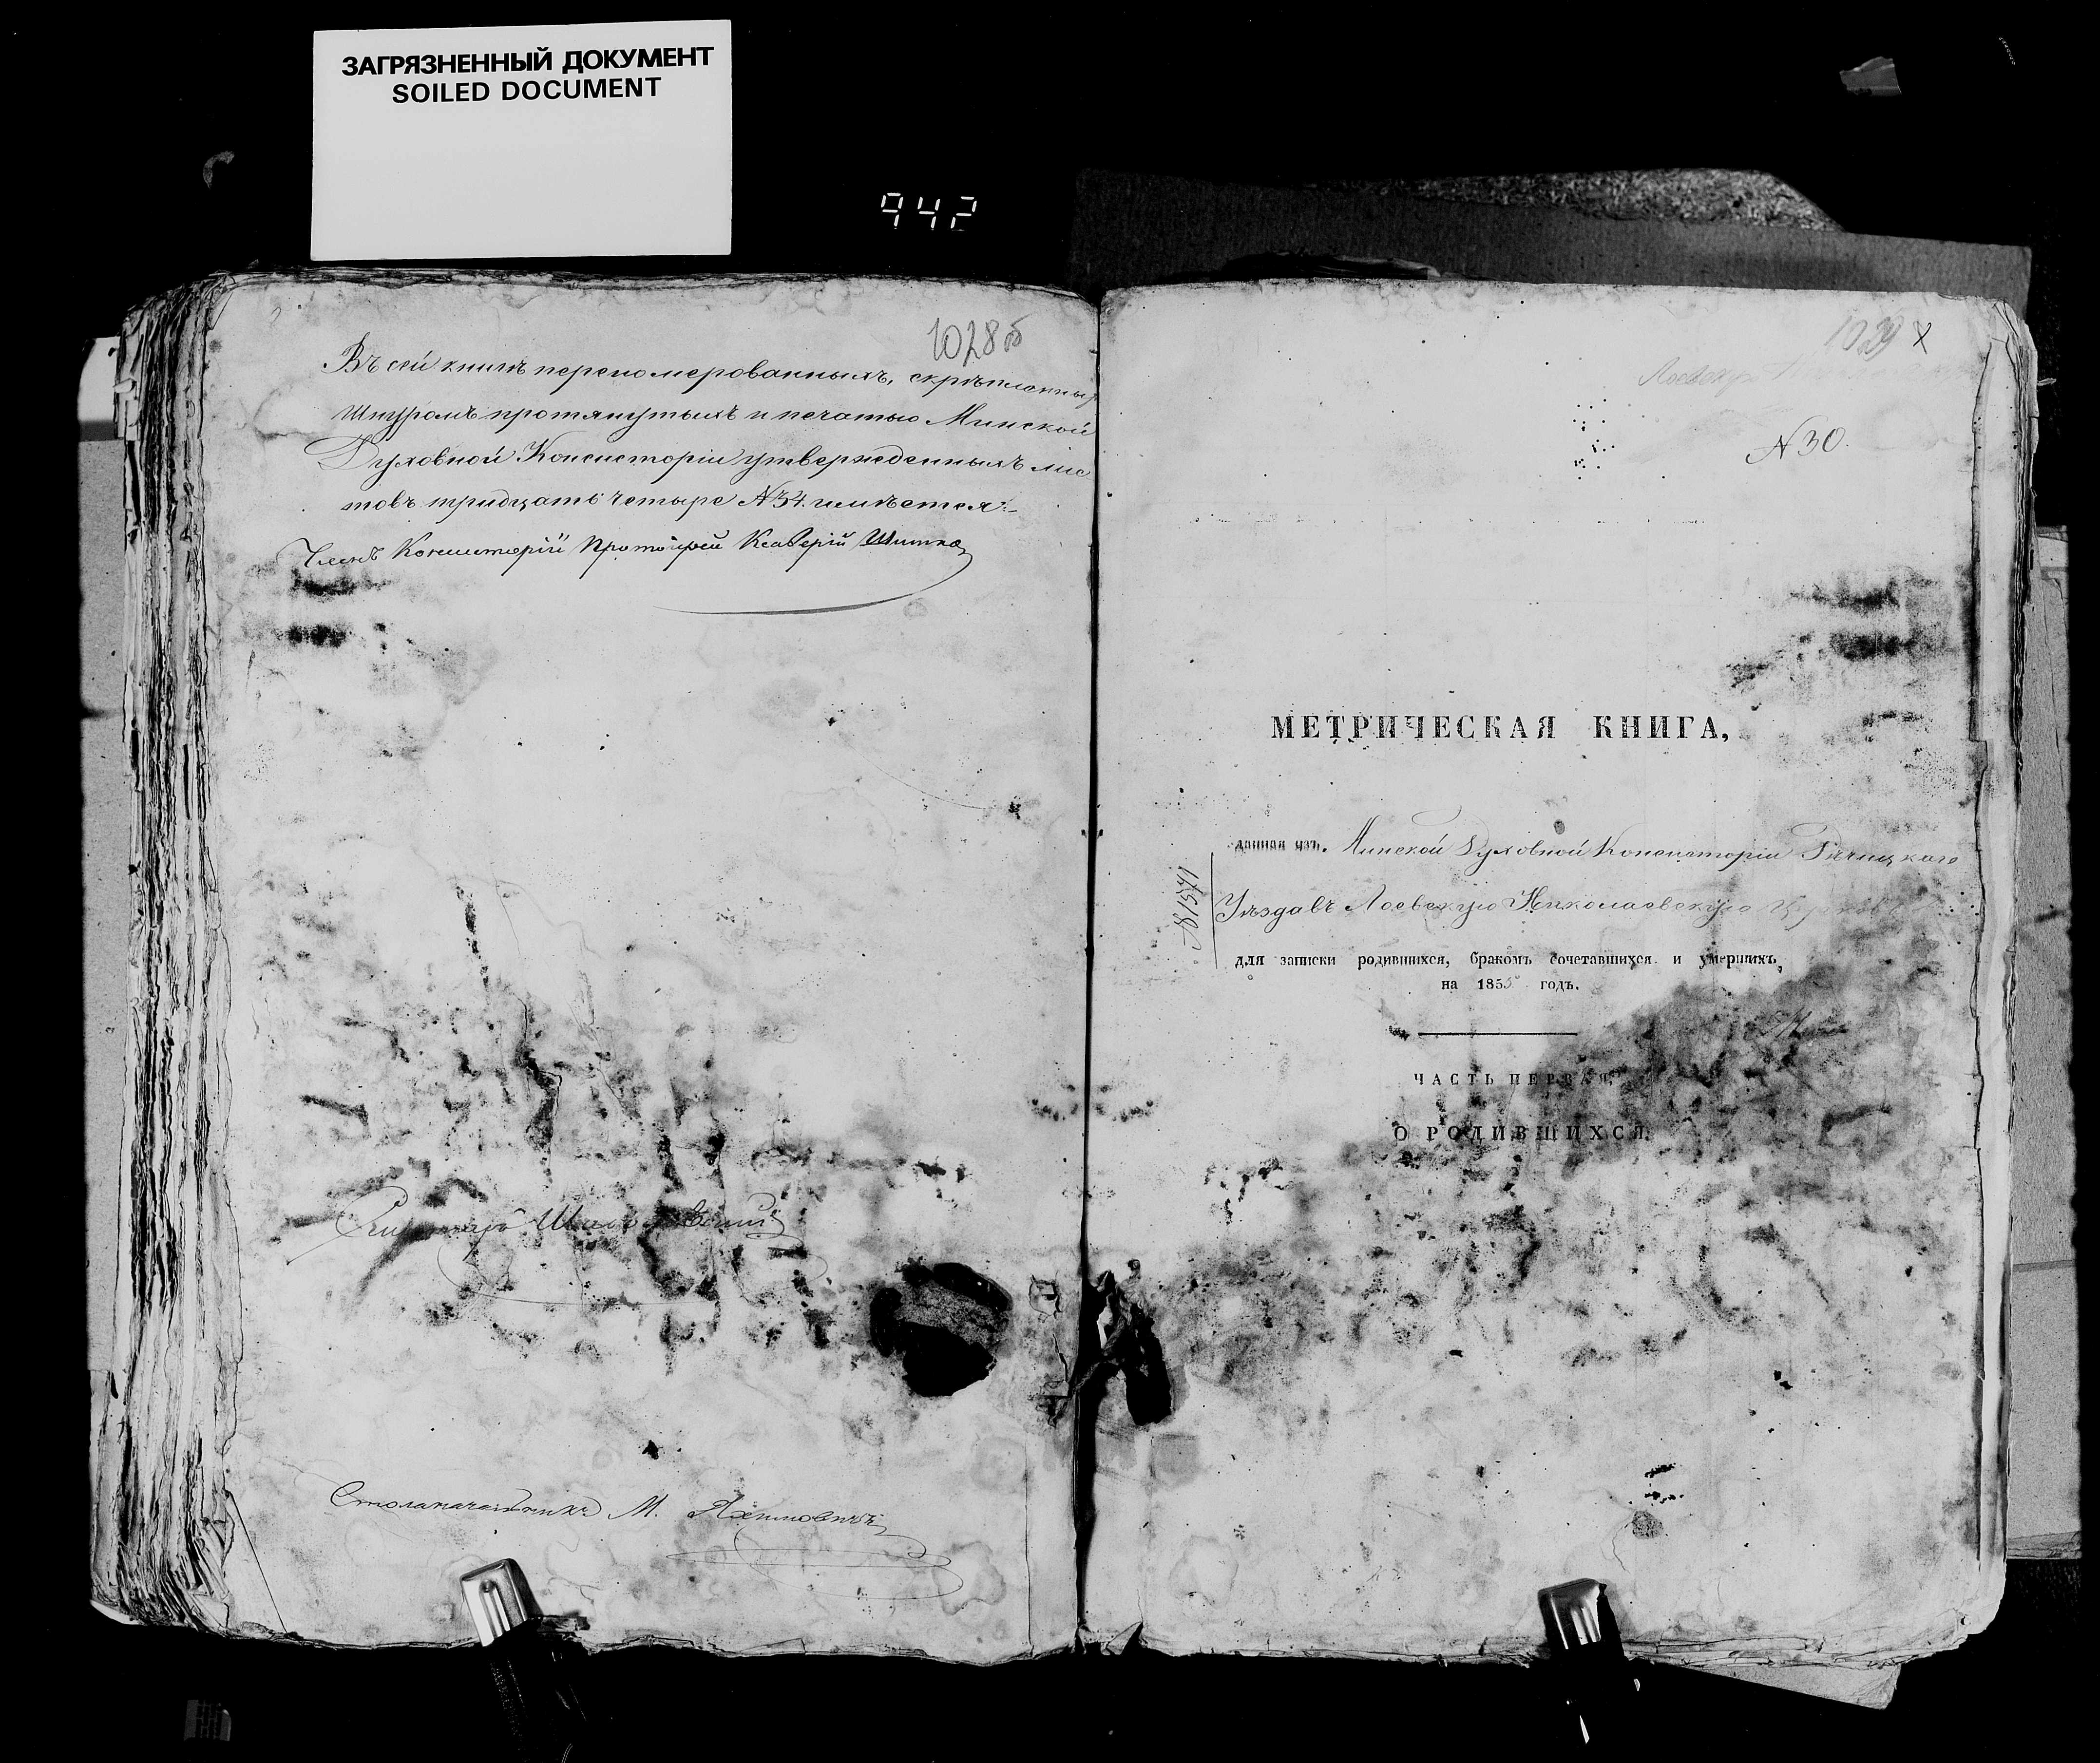 ЗАГРЯЗНЕННЫЙ ДОКУМЕНТ
SOILED DOCUMENT
942
1028 об
Въ сей книгѣ перепомерованныхъ, скрѣпленны
шнуромъ протянутыхъ и печатью Минской
Духовной Консисторіи утвержденныхъ лис
товъ тридцать четыре №34. имѣется:
Членъ Консисторіи Протоіерей
Секретарь
Столоначальникъ М.
1029
№ 30.
МЕТРИЧЕСКАЯ КНИГА,
данная изъ Минской Духовной Консисторіи Рѣчицкаго
Уѣзда въ Лоевскую Николаевскую Церковь
№ 1571
для записки родившихся, бракомъ сочетавшихся и умершихъ,
на 1855 годъ.
ЧАСТЬ ПЕРВАЯ,
О РОДИВШИХСЯ.